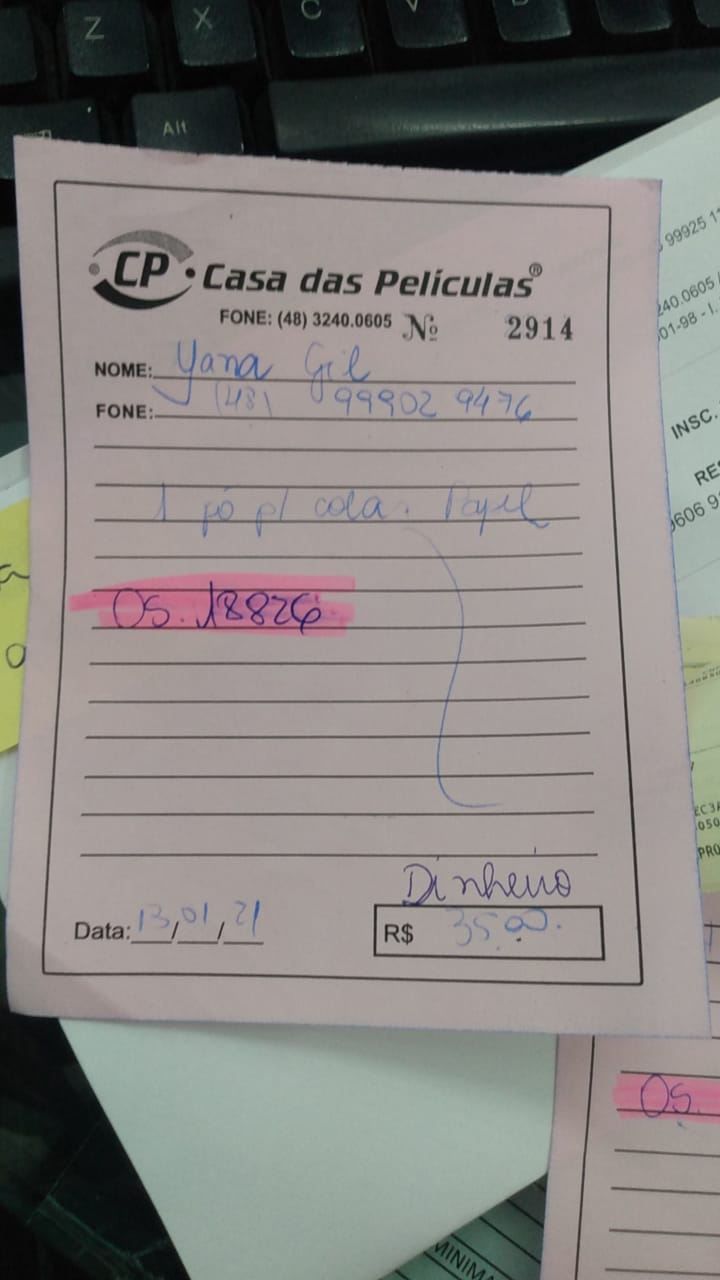 Z X C
Alt
CP • Casa das Películas®
FONE: (48) 3240.0605 Nº 2914
NOME: Yana Gil
FONE: (48) 99902 9476
1 pó p/ cola. Papel
OS. 18826
Dinheiro
Data: 13/01/21 R$ 35,00.
99925 11
240.0605 /
01-98 - I.
INSC.
RES
9606 9
050
PRO
OS.
MINIMA